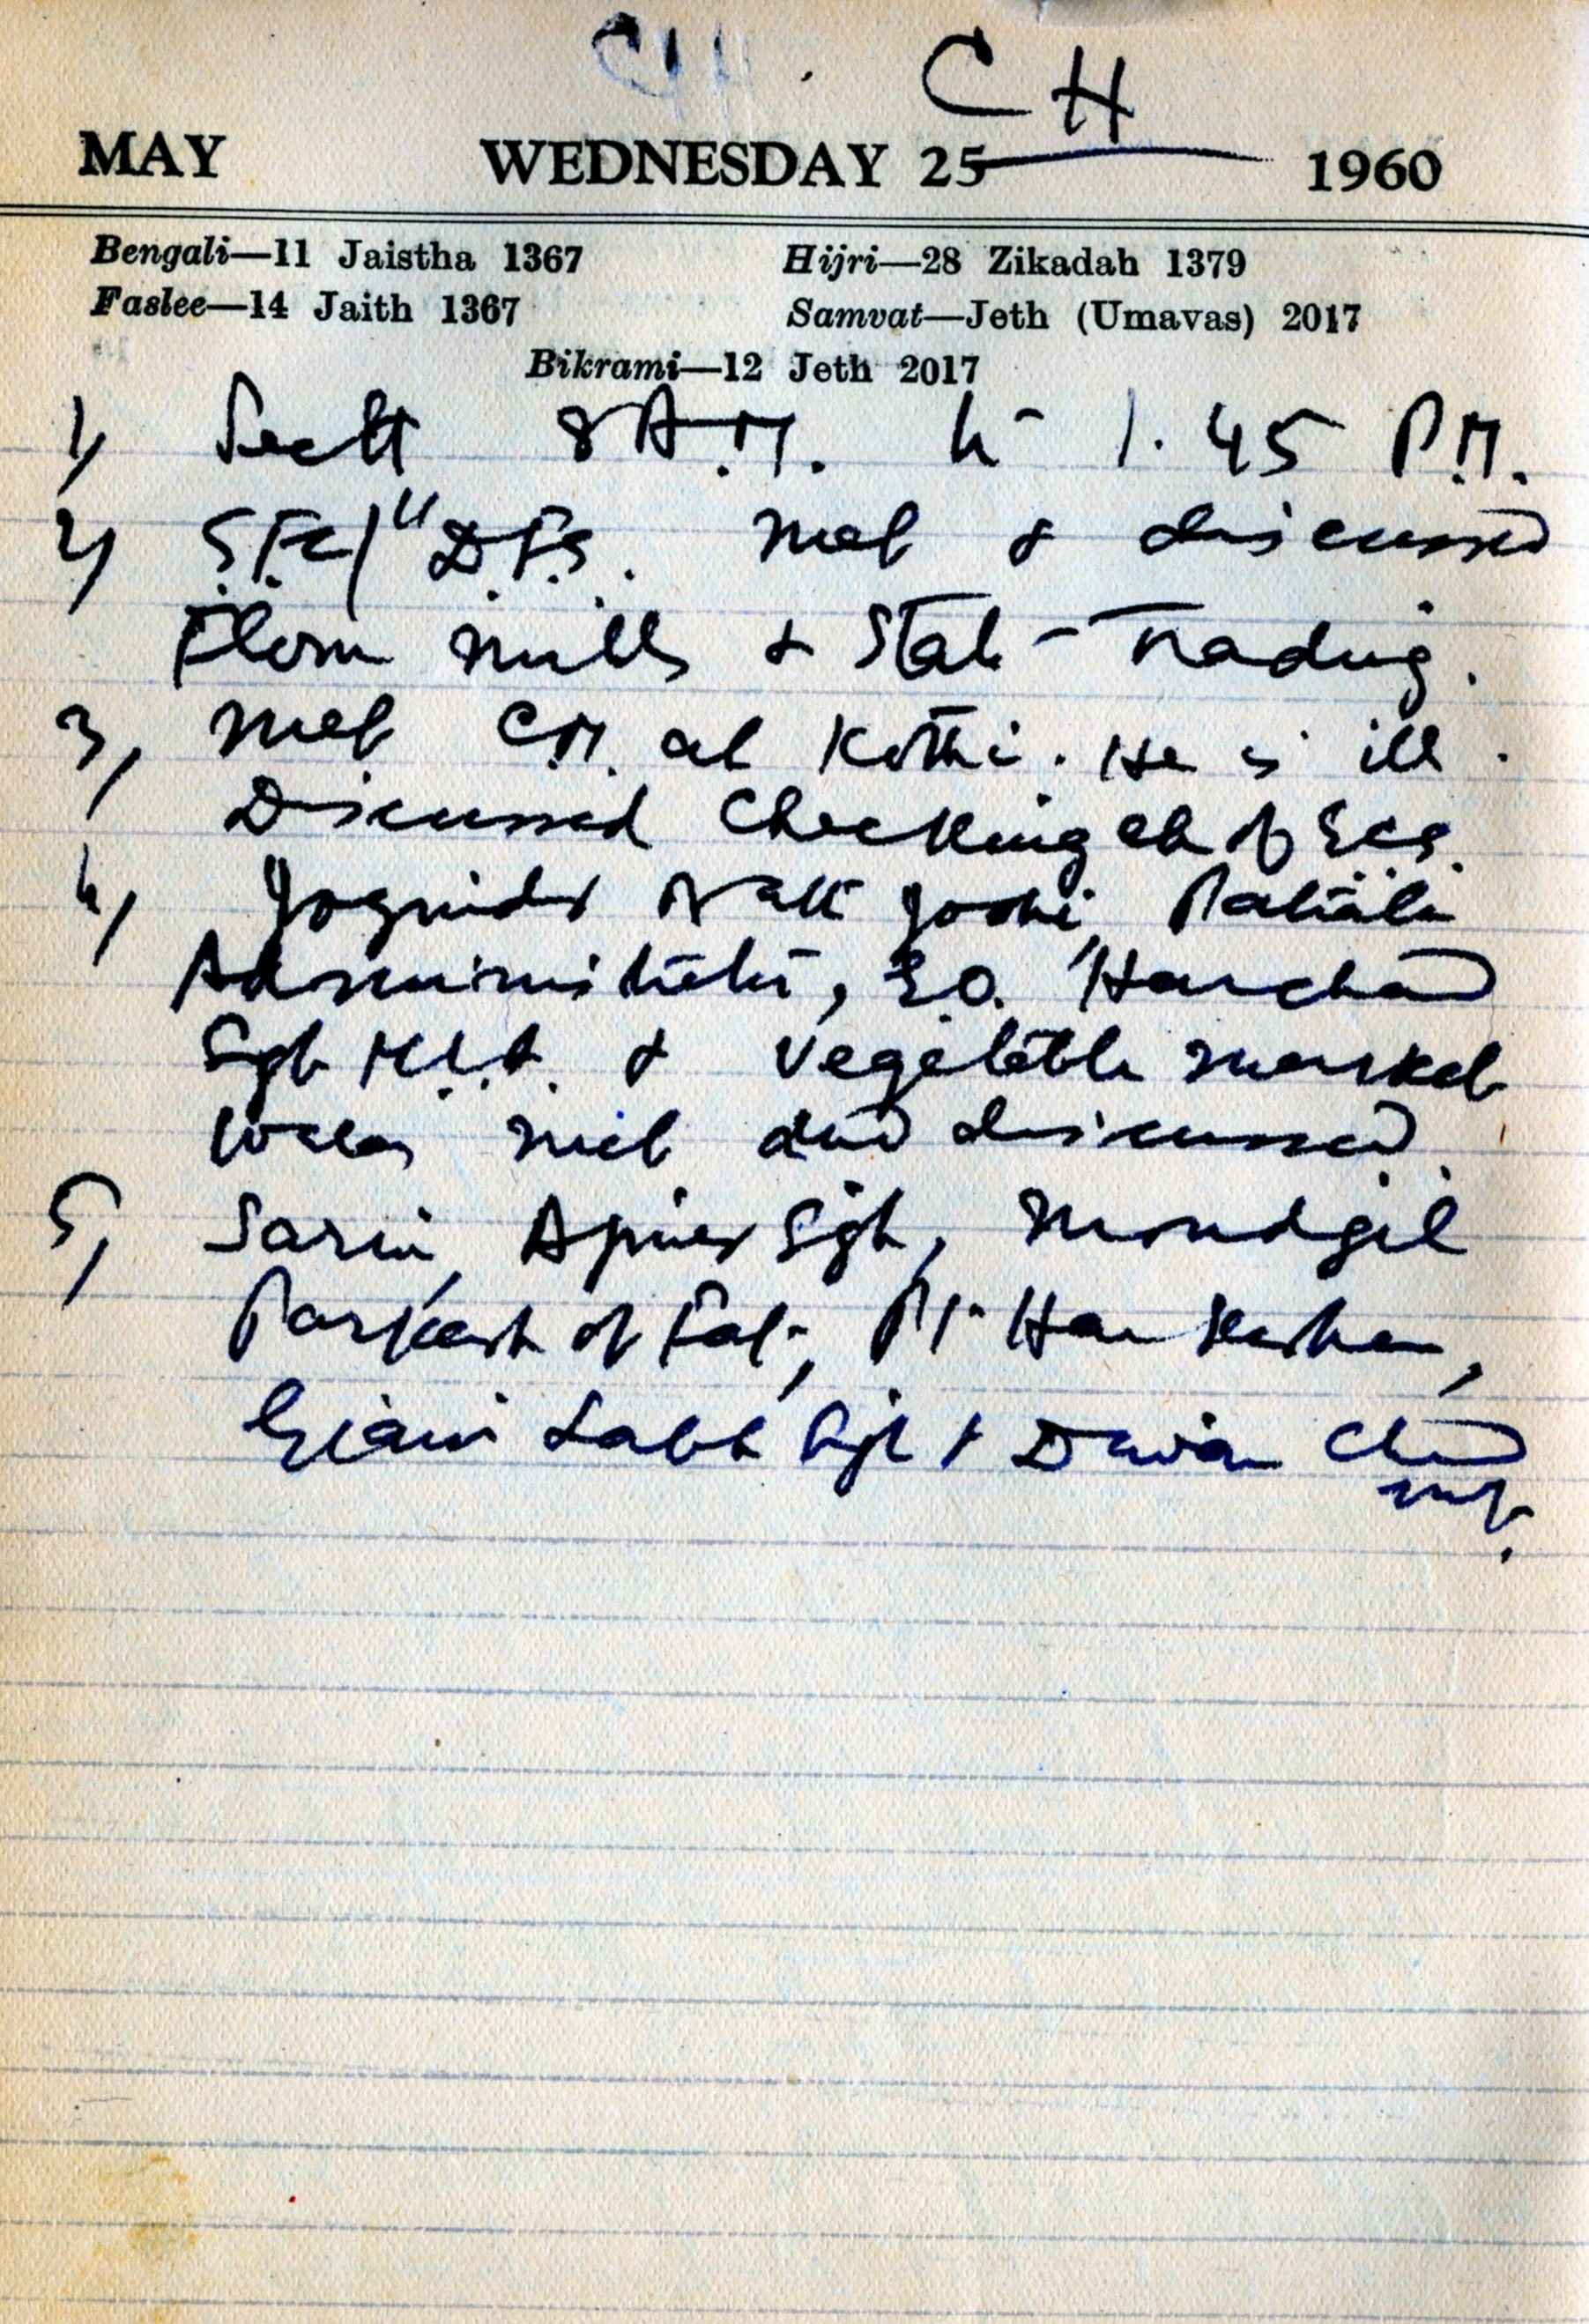 CH
MAY WEDNESDAY 25 1960
Bengali—11 Jaistha 1367 Hijri—28 Zikadah 1379
Faslee—14 Jaith 1367 Samvat—Jeth (Umavas) 2017
Bikrami—12 Jeth 2017
1) Sectt 8 A.M. to 1.45 P.M.
2) D.F.S. met & discussed
Flour mills & State-Trading.
3, met C.M. at Kothi. He is ill.
Discussed Checking of
4, Joginder Nath Joshi, Patiala
Administrator, E.O. Harchand
Sgh M.L.A. & vegetable market
walas met and discussed.
5, Sarin, Sgh, Moudgil
Parkash of Pat., Pt. Har Kishan,
Giani Labh Sgh & Dewan Chand
met.